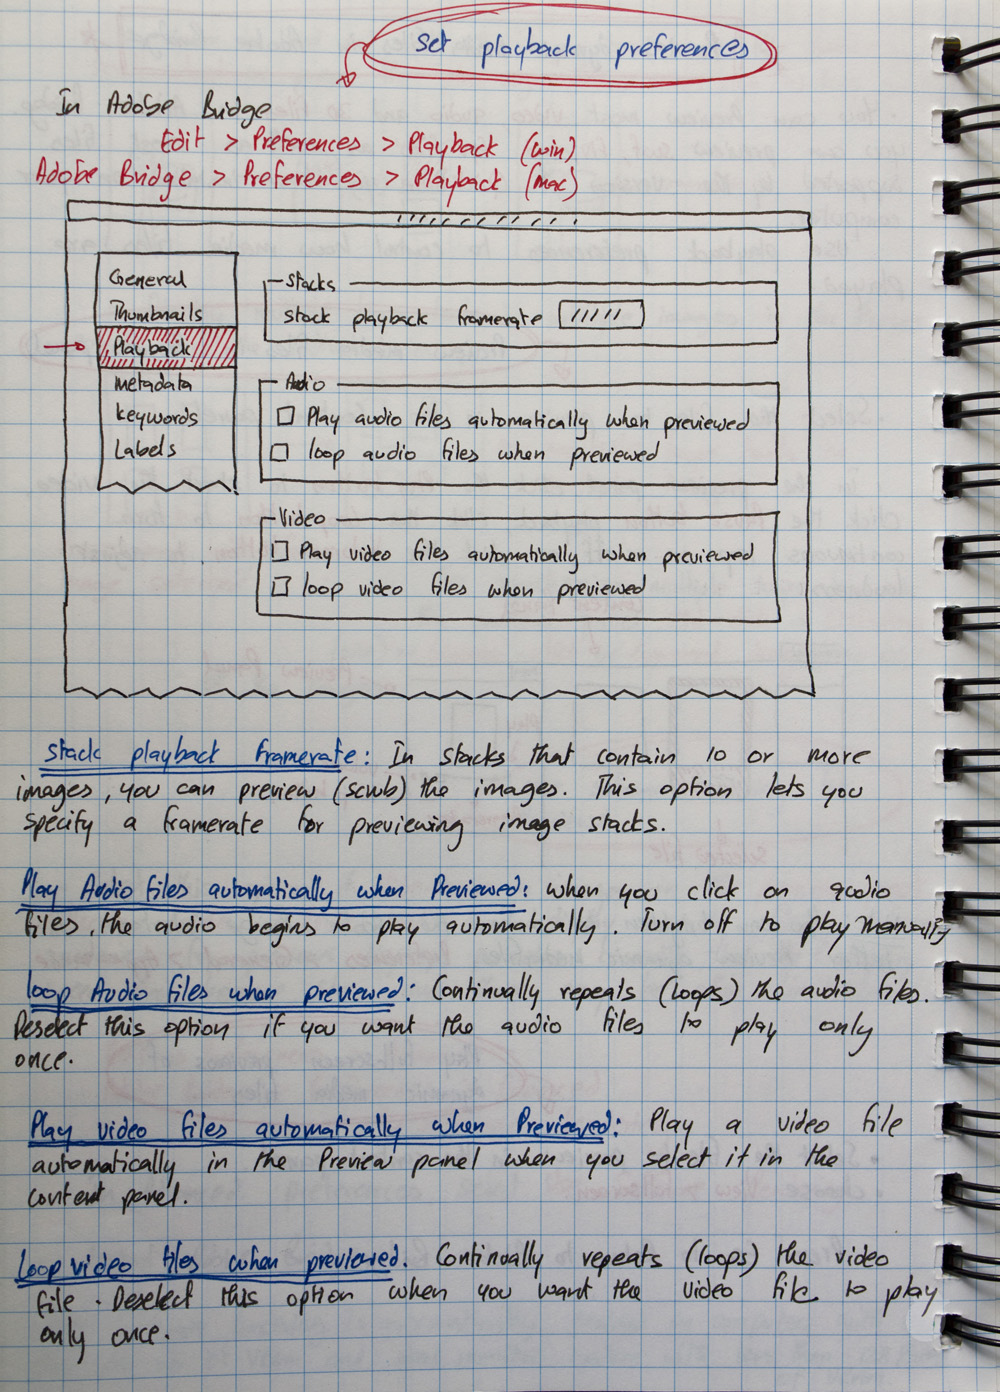 Set playback preferences
In Adobe Bridge
Edit > Preferences > Playback (win)
Adobe Bridge > Preferences > Playback (mac)
General
Thumbnails
Playback
Metadata
Keywords
Labels
Stacks
stack playback framerate
Audio
Play audio files automatically when previewed
loop audio files when previewed
Video
Play video files automatically when previewed
loop video files when previewed
Stack playback framerate: In stacks that contain 10 or more
images, you can preview (scrub) the images. This option lets you
specify a framerate for previewing image stacks.
Play Audio files automatically when Previewed: when you click on audio
files, the audio begins to play automatically. Turn off to play manually
loop Audio files when previewed: Continually repeats (loops) the audio files.
Deselect this option if you want the audio files to play only
once.
Play video files automatically when Previewed: Play a video file
automatically in the Preview panel when you select it in the
content panel.
Loop video files when previewed. Continually repeats (loops) the video
file. Deselect this option when you want the video file to play
only once.